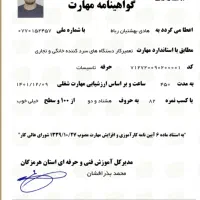 گواهینامه مهارت
اعطا می گردد به هادی بهشتیان ریاط با شماره ملی ۰۷۷۰۱۵۲۴۵۷
مطابق با استاندارد مهارت تعمیرکار دستگاه های سرد کننده خانگی و تجاری
کد ۷۱۲۷۲۰۰۹۰۴۰۰۰۱ حرفه تاسیسات
به مدت ۲۵۰ ساعت و بر اساس ارزشیابی مهارت شغلی ۱۴۰۱/۱۲/۰۹
با کسب نمره ۸۲ به حروف هشتاد و دو از ۱۰۰ و سطح خیلی خوب
"به استناد ماده ۶ آیین نامه کارآموزی و افزایش مهارت مصوب ۱۳۴۹/۱۰/۲۷ شورای عالی کار"
مدیرکل آموزش فنی و حرفه ای استان هرمزگان
محمد بذرافشان